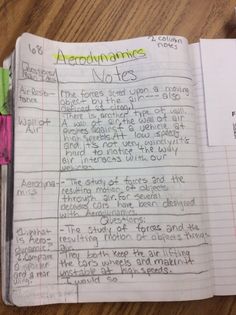 108
2 column notes
Aerodynamics
Notes
Air Resis- The forces acted upon a moving
tance object by the air also
Wall of There is another type of wall.
Air A wall of air, the wall of air
pushes against a vehicle at
high speeds. At low speeds
and it's not very windy, it's
hard to notice the way
air interacts with our
Aerodyna- - The study of forces and the
mics resulting motion of objects
through air for several
decades cars have been designed
with Aerodynamics.
Questions:
1. what - The study of forces and the
is Aero- resulting motion of objects through
dynamic air.
2. Compare They both keep the air lifting
a spoiler the cars wheels and making it
and a rear unstable at high speeds.
wing. I would so